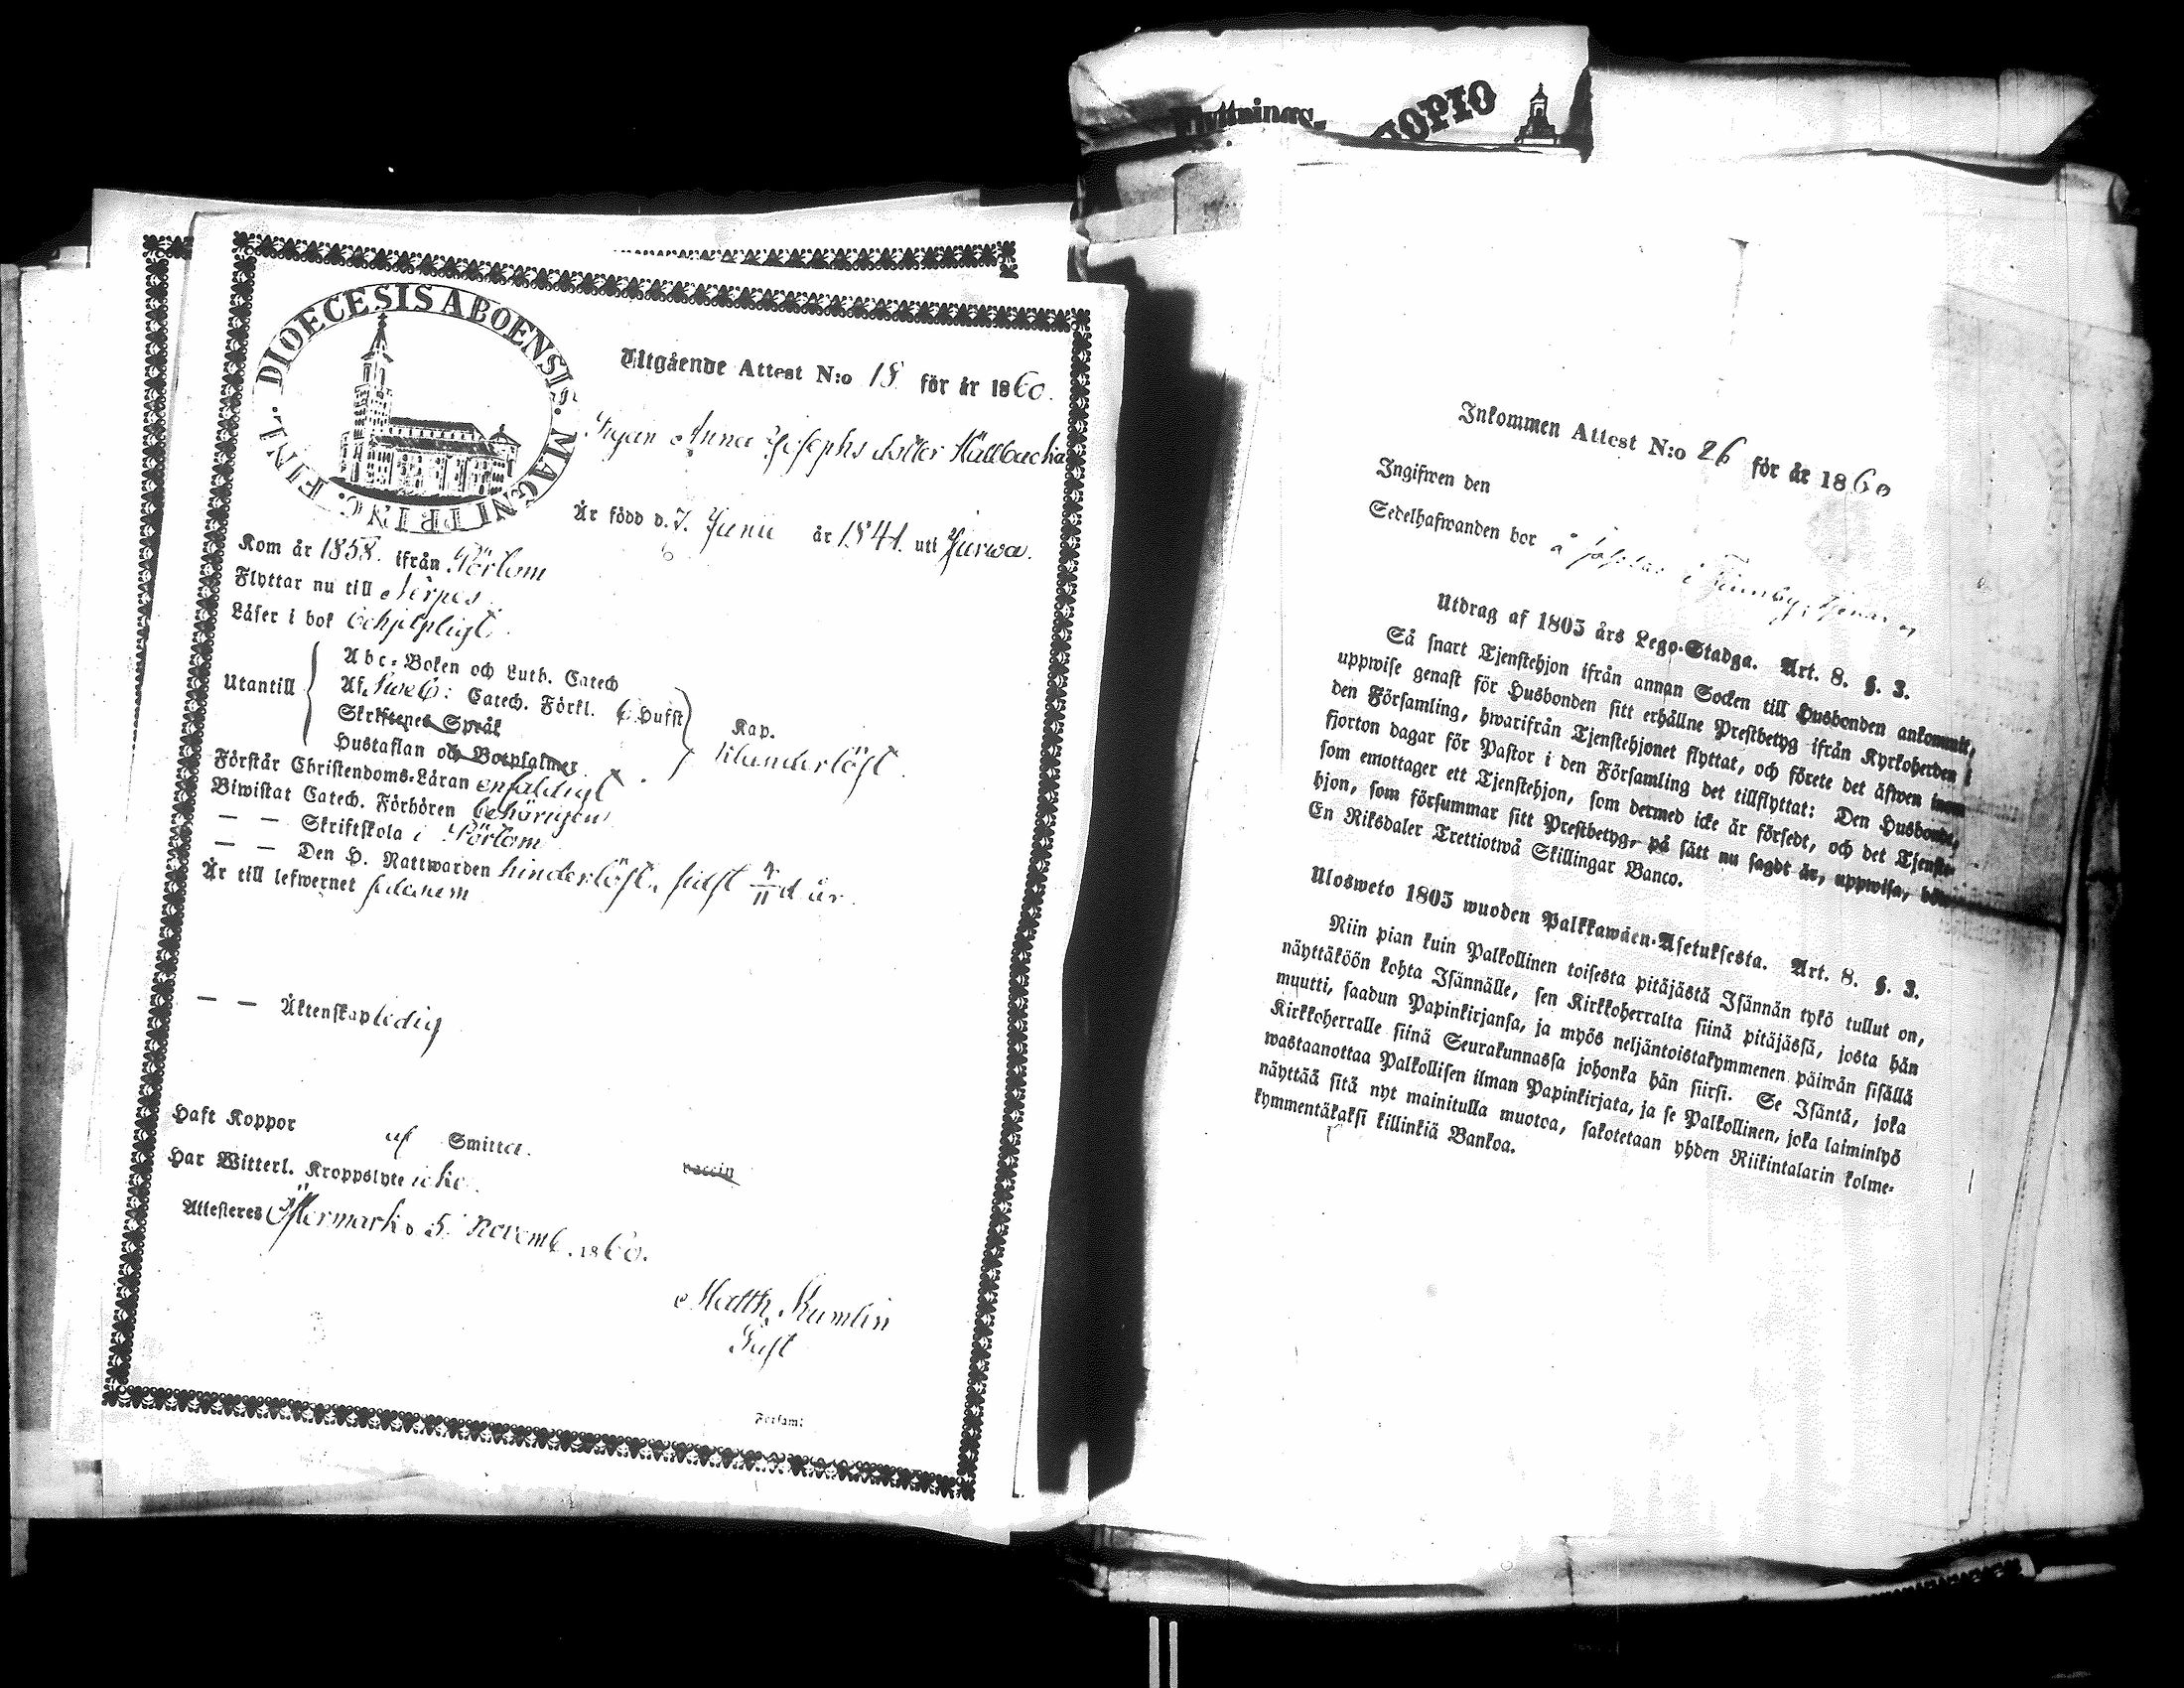 DIOECESIS ABOENSIS. MAGNI PRINC. FINL.
Utgående Attest N:o 18 för år 1860.
Pigan Anna Josephs dotter Källbacka
Är född d. 7. Junii år 1841. uti Jurwa.
Kom år 1858. ifrån Pörtom
Flyttar nu till Nerpes.
Läser i bok ohjelpligt.
Utantill
Abc-Boken och Luth. Catech
Af Sweb: Catech. Förkl. 6 Hufst
Skriftenes Språk
Hustaflan och Botpsalmer
Kap.
klanderlöst.
Förstår Christendoms-Läran enfaldigt
Biwistat Catech. Förhören behörigen
— — Skriftskola i Pörtom
— — Den H. Nattwarden hinderlöst, sidst 4/11 d. år.
Är till lefwernet sedesam
— — Äktenskap ledig
Haft Koppor af Smitta. vaccin
Har Witterl. Kroppslyte icke.
Attesteres Östermark d. 5. Novemb. 1860.
Matth. Kumlin
Församl
Flyttnings-
UOPIO
Inkommen Attest N:o 26 för år 1860
Ingifwen den
Sedelhafwanden bor å i Finnby,
Utdrag af 1805 års Lego-Stadga. Art. 8. §. 3.
Så snart Tjenstehjon ifrån annan Socken till Husbonden ankommit,
uppwise genast för Husbonden sitt erhållne Prestbetyg ifrån Kyrkoherden i
den Församling, hwarifrån Tjenstehjonet flyttat, och förete det äfwen inom
fjorton dagar för Pastor i den Församling det tillflyttat: Den Husbonde,
som emottager ett Tjenstehjon, som dermed icke är försedt, och det Tjenste-
hjon, som försummar sitt Prestbetyg, på sätt nu sagdt är, uppwisa, böte
En Riksdaler Trettiotwå Skillingar Banco.
Ulosweto 1805 wuoden Palkkawäen-Asetuksesta. Art. 8. §. 3.
Niin pian kuin Palkollinen toisesta pitäjästä Isännän tykö tullut on,
näyttäköön kohta Isännälle, sen Kirkkoherralta siinä pitäjässä, josta hän
muutti, saadun Papinkirjansa, ja myös neljäntoistakymmenen päiwän sisällä
Kirkkoherralle siinä Seurakunnassa johonka hän siirsi. Se Isäntä, joka
wastaanottaa Palkollisen ilman Papinkirjata, ja se Palkollinen, joka laiminlyö
näyttää sitä nyt mainitulla muotoa, sakotetaan yhden Riikintalarin kolme-
kymmentäkaksi killinkiä Bankoa.